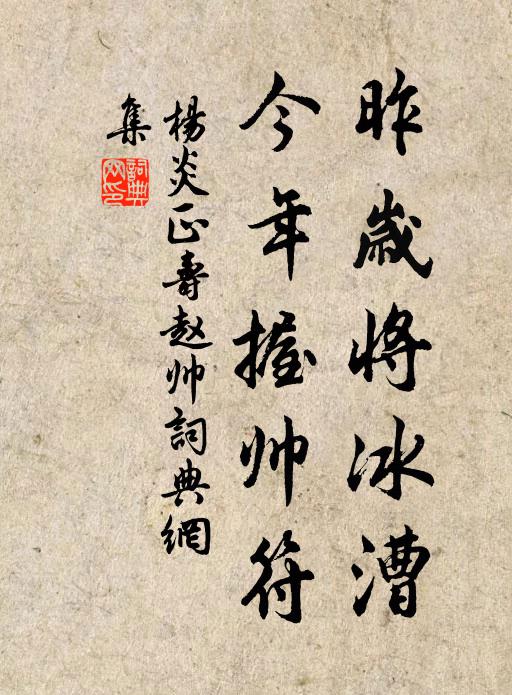 昨歲將冰漕
今年握帅符
楊炎正壽赵帅詞典網
集
詞典
网印